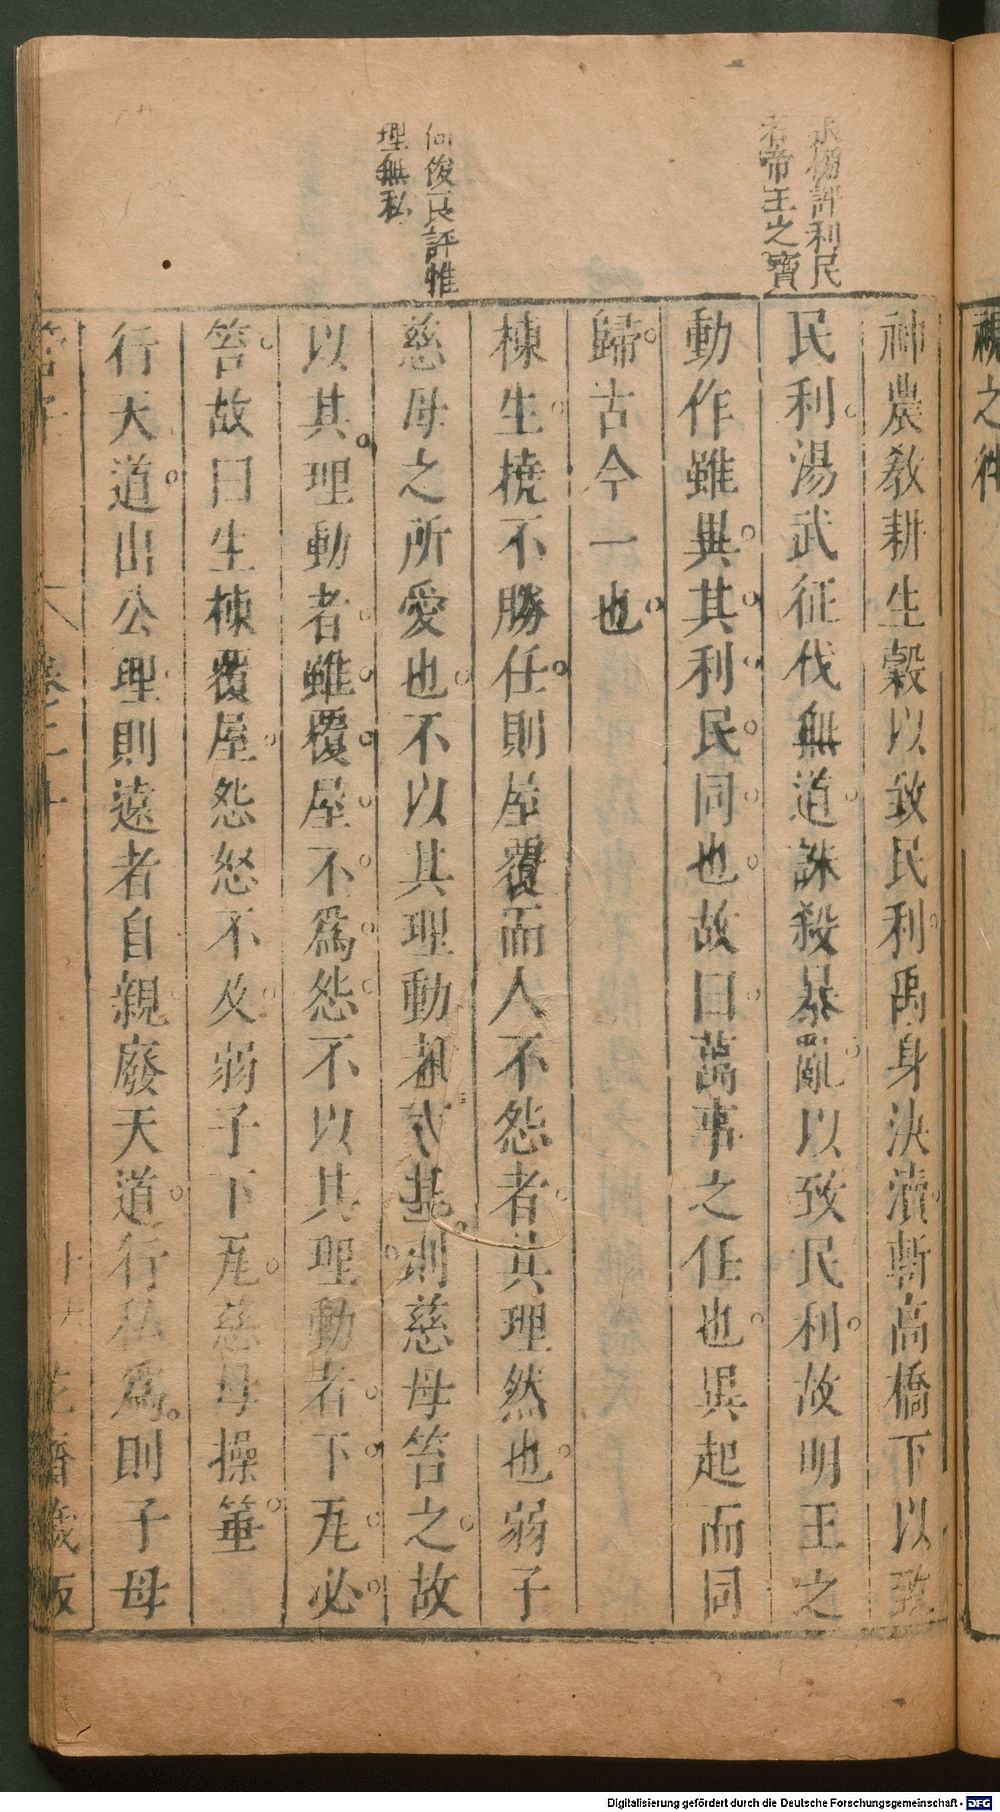 評利民
者帝王之寶
神農教耕生穀以致民利禹身決瀆斬高橋下以致
民利湯武征伐無道誅殺暴亂以致民利故明王之
動作雖異其利民同也故曰萬事之任也異起而同
歸古今一也
棟生橈不勝任則屋覆而人不怨者其理然也弱子
何俊良評惟
理無私
慈母之所愛也不以其理動者下瓦則慈母笞之故
以其理動者雖覆屋不爲怨不以其理動者下瓦必
笞故曰生棟覆屋怨怒不及弱子下瓦慈母操箠
行天道出公理則遠者自親廢天道行私爲則子母
管子
卷二十
花齋藏板
Digitalisierung gefördert durch die Deutsche Forschungsgemeinschaft - DFG